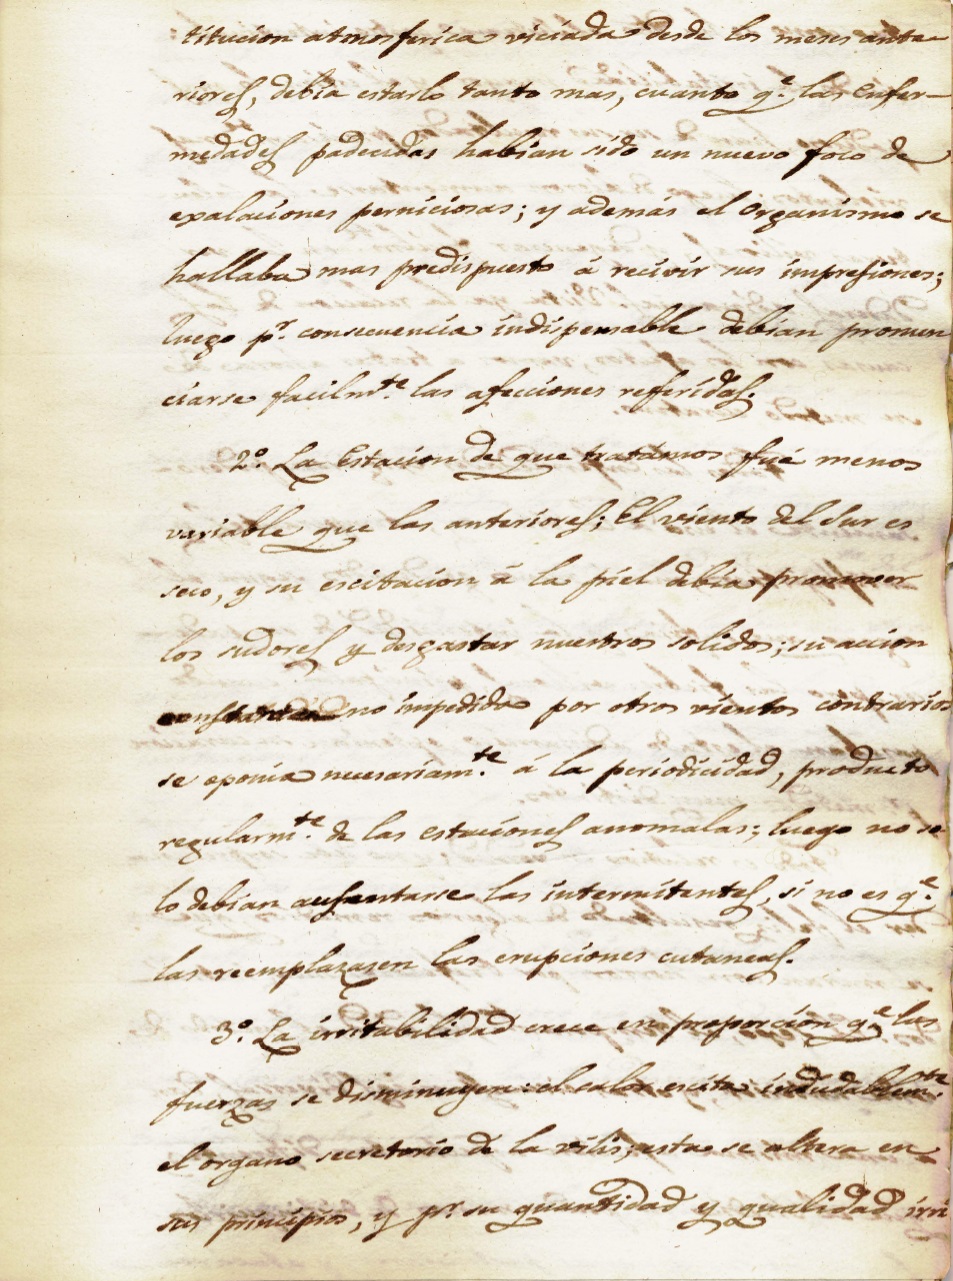 titucion atmosferica viciada desde los meses ante-
riores, debia estarlo tanto mas, cuanto q.e las enfer-
medades padecidas habian sido un nuevo foco de
exalaciones perniciosas; y además el organismo se
hallaba mas predispuesto á recivir sus impresiones;
luego p.r consecuencia indispensable debian pronun
ciarse facilm.te las afecciones referidas.
2.o La Estacion de que tratamos fué menos
variable que las anteriores; El viento del Sur es
seco, y su escitacion á la piel debia promover
los sudores y desgastar nuestros solidos; su accion
constante no impedida por otros vientos contrarios
se oponia necesariam.te á la periodicidad, producto
regularm.te de las estaciones anomalas; luego no so
lo debian ausentarse las intermitentes, si no es q.e
las reemplazasen las erupciones cutaneas.
3.o La irritabilidad crece en proporcion q.e las
fuerzas se disminuyen: el calor escita indudablem.te
el organo secretorio de la vilis; esta se altera en
sus principios, y p.r su quantidad y qualidad irri